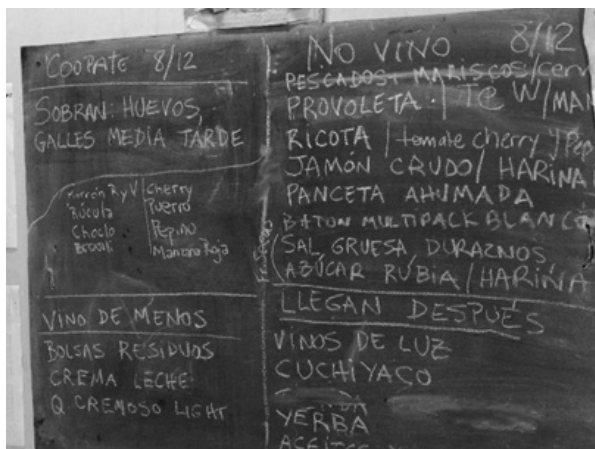 COOPATE 8/12
SOBRAN: HUEVOS,
GALLES MEDIA TARDE
Morrón R y V / Cherry
Rúcula Puerro
Choclo Pepino
Brocoli Manzana Roja
VINO DE MENOS
BOLSAS RESIDUOS
CREMA LECHE
Q CREMOSO LIGHT
NO VINO 8/12
PESCADOS, MARISCOS/cerv
PROVOLETA. / TE W/MAN
RICOTA / tomate cherry y Pep
JAMÓN CRUDO / HARINA
PANCETA AHUMADA
BATON MULTIPACK BLANCO
SAL GRUESA DURAZNOS
AZÚCAR RUBIA / HARINA
LLEGAN DESPUÉS
VINOS DE LUZ
CUCHIYACO
YERBA
ACEITES